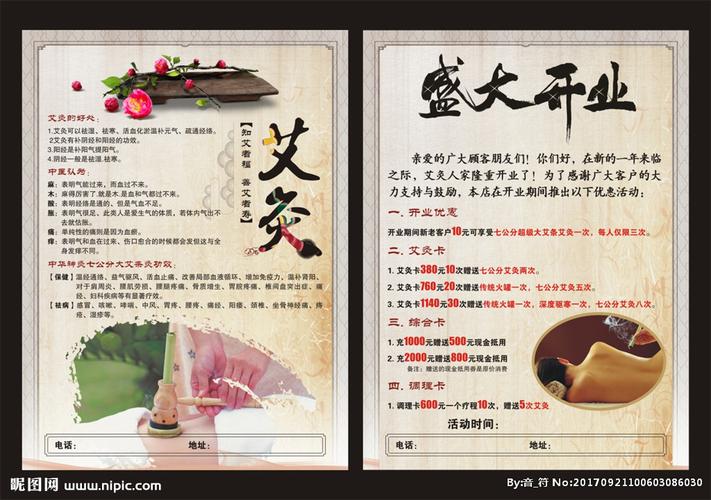 艾灸的好处:
1.艾灸可以祛湿、祛寒、活血化淤温补元气、疏通经络。
2艾灸有补阴经和阳经的功效。
3.阳经是补阳气提阳气。
4.阴经一般是祛湿.祛寒。
中医认为:
麻: 表明气能过来,而血过不来。
木: 麻得厉害了.就是木.是血和气都过不来。
酸: 表明经络是通的、但是气血不足。
胀: 表明气很足、此类人是爱生气的体质、若体内气出不
去就怙胀。
痛: 单纯性的痛则是因为血瘀。
痒: 表明气和血在过来、伤口愈合的时候都会发但这与全
身发痒不同。
中华神灸七公分大艾条灸功效:
【保健】温经通络、益气驱风、活血止痛、改善局部血液循环、增加免疫力、温补肾阳、
对于肩周炎、腰肌劳损、腰腿疼痛、骨质增生、胃院疼痛、椎间盘突出症、痛
经、妇科疾病等有显著疗效。
【祛病】感冒、咳嗽、哮喘、中风、胃疼、腰疼、痛经、阳痿、颈椎、坐骨神经痛、痔
疮、湿疹等。
【知艾者福 善艾者寿】
艾灸
电话: 地址:
盛大开业
亲爱的广大顾客朋友们!你们好,在新的一年来临
之际,艾灸人家隆重开业了!为了感谢广大客户的大
力支持与鼓励,本店在开业期间推出以下优惠活动:
一. 开业优惠
开业期间新老客户10元可享受七公分超级大艾条艾灸一次,每人仅限三次。
二. 艾灸卡
1. 艾灸卡380元10次赠送七公分艾灸两次。
2. 艾灸卡760元20次赠送传统火罐一次,七公分艾灸五次。
3. 艾灸卡1140元30次赠送传统火罐一次,深度驱寒一次,七公分艾灸八次。
三. 综合卡
1. 充1000元赠送500元现金抵用
2. 充2000元赠送800元现金抵用
备注:赠送的现金抵用券是原价消费
四. 调理卡
1. 调理卡600元一个疗程10次,赠送5次艾灸
活动时间:
电话: 地址:
昵图网 www.nipic.com
By:音_符 No:20170921100603086030